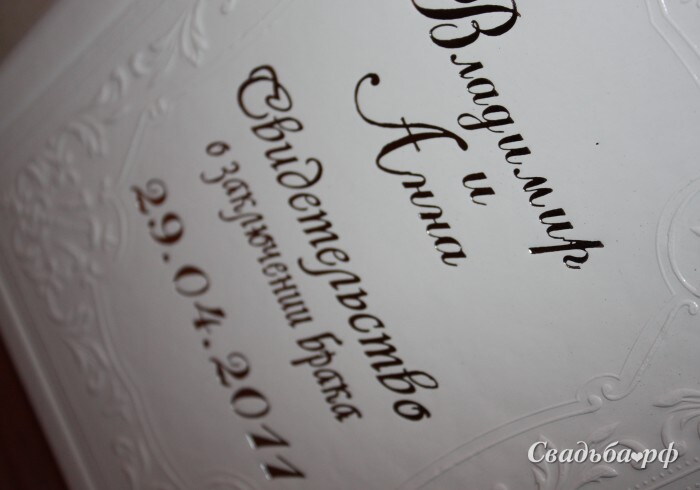 Владимир
и
Анна
Свидетельство
о заключении брака
29.04.2011
Свадьба.рф